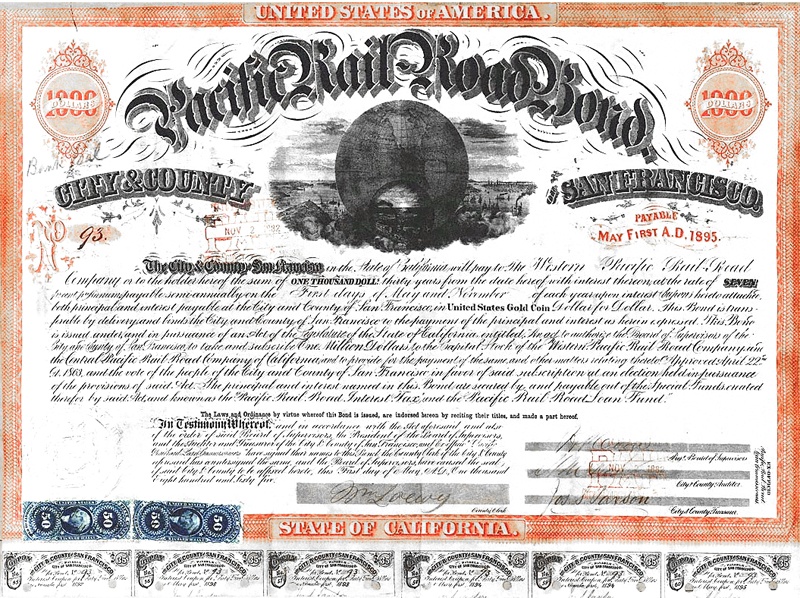 UNITED STATES OF AMERICA.
Pacific Rail-Road Bond,
1000 DOLLARS
1000 DOLLARS
CITY & COUNTY OF SAN FRANCISCO.
No 93.
NOV 2
PAYABLE
MAY FIRST A.D. 1895.
The City & County of San Francisco in the State of California, will pay to the Western Pacific Rail-Road
Company or to the holder hereof the sum of ONE THOUSAND DOLLS. thirty years from the date hereof with interest thereon, at the rate of SEVEN
per annum, payable semi-annually on the First days of May and November of each year upon interest coupons hereto attached,
both principal and interest payable at the City and County of San Francisco, in United States Gold Coin Dollar for Dollar. This Bond is trans-
ferable by delivery, and binds the City and County of San Francisco to the payment of the principal and interest as herein expressed. This Bond
is issued under, and in pursuance of an Act of the Legislature of the State of California, entitled, "An act to authorize the Board of Supervisors of the
City and County of San Francisco, to take and subscribe One Million Dollars to the Capital Stock of the Western Pacific Rail Road Company and
the Central Pacific Rail Road Company of California, and to provide for the payment of the same, and other matters relating thereto" Approved April 22nd
1863, and the vote of the people of the City and County of San Francisco in favor of said subscription at an election held in pursuance
of the provisions of said Act. The principal and interest named in this Bond are secured by, and payable out of the Special Funds, created
therefor by said Act, and known as the "Pacific Rail Road Interest Tax" and the "Pacific Rail Road Loan Fund."
The Laws and Ordinance by virtue whereof this Bond is issued, are indorsed hereon by reciting their titles, and made a part hereof.
In Testimony Whereof, and in accordance with the Act aforesaid and also
of the order of said Board of Supervisors, the President of the Board of Supervisors,
and the Auditor and Treasurer of the City & County of San Francisco, and Ex officio
have signed their names to this Bond, the County Clerk of the City & County
aforesaid has countersigned the same, and the Board of Supervisors, have caused the seal
of said City & County to be affixed hereto, this First day of May, A.D. One thousand
Eight hundred and sixty five.
Wm Loewy
County Clerk
Pres. Board of Supervisors
City & County Auditor
Jos S Paxson
City & County Treasurer
50 50 50 50
STATE OF CALIFORNIA.
CITY & COUNTY OF SAN FRANCISCO
CITY & COUNTY OF SAN FRANCISCO
CITY & COUNTY OF SAN FRANCISCO
CITY & COUNTY OF SAN FRANCISCO
CITY & COUNTY OF SAN FRANCISCO
CITY & COUNTY OF SAN FRANCISCO